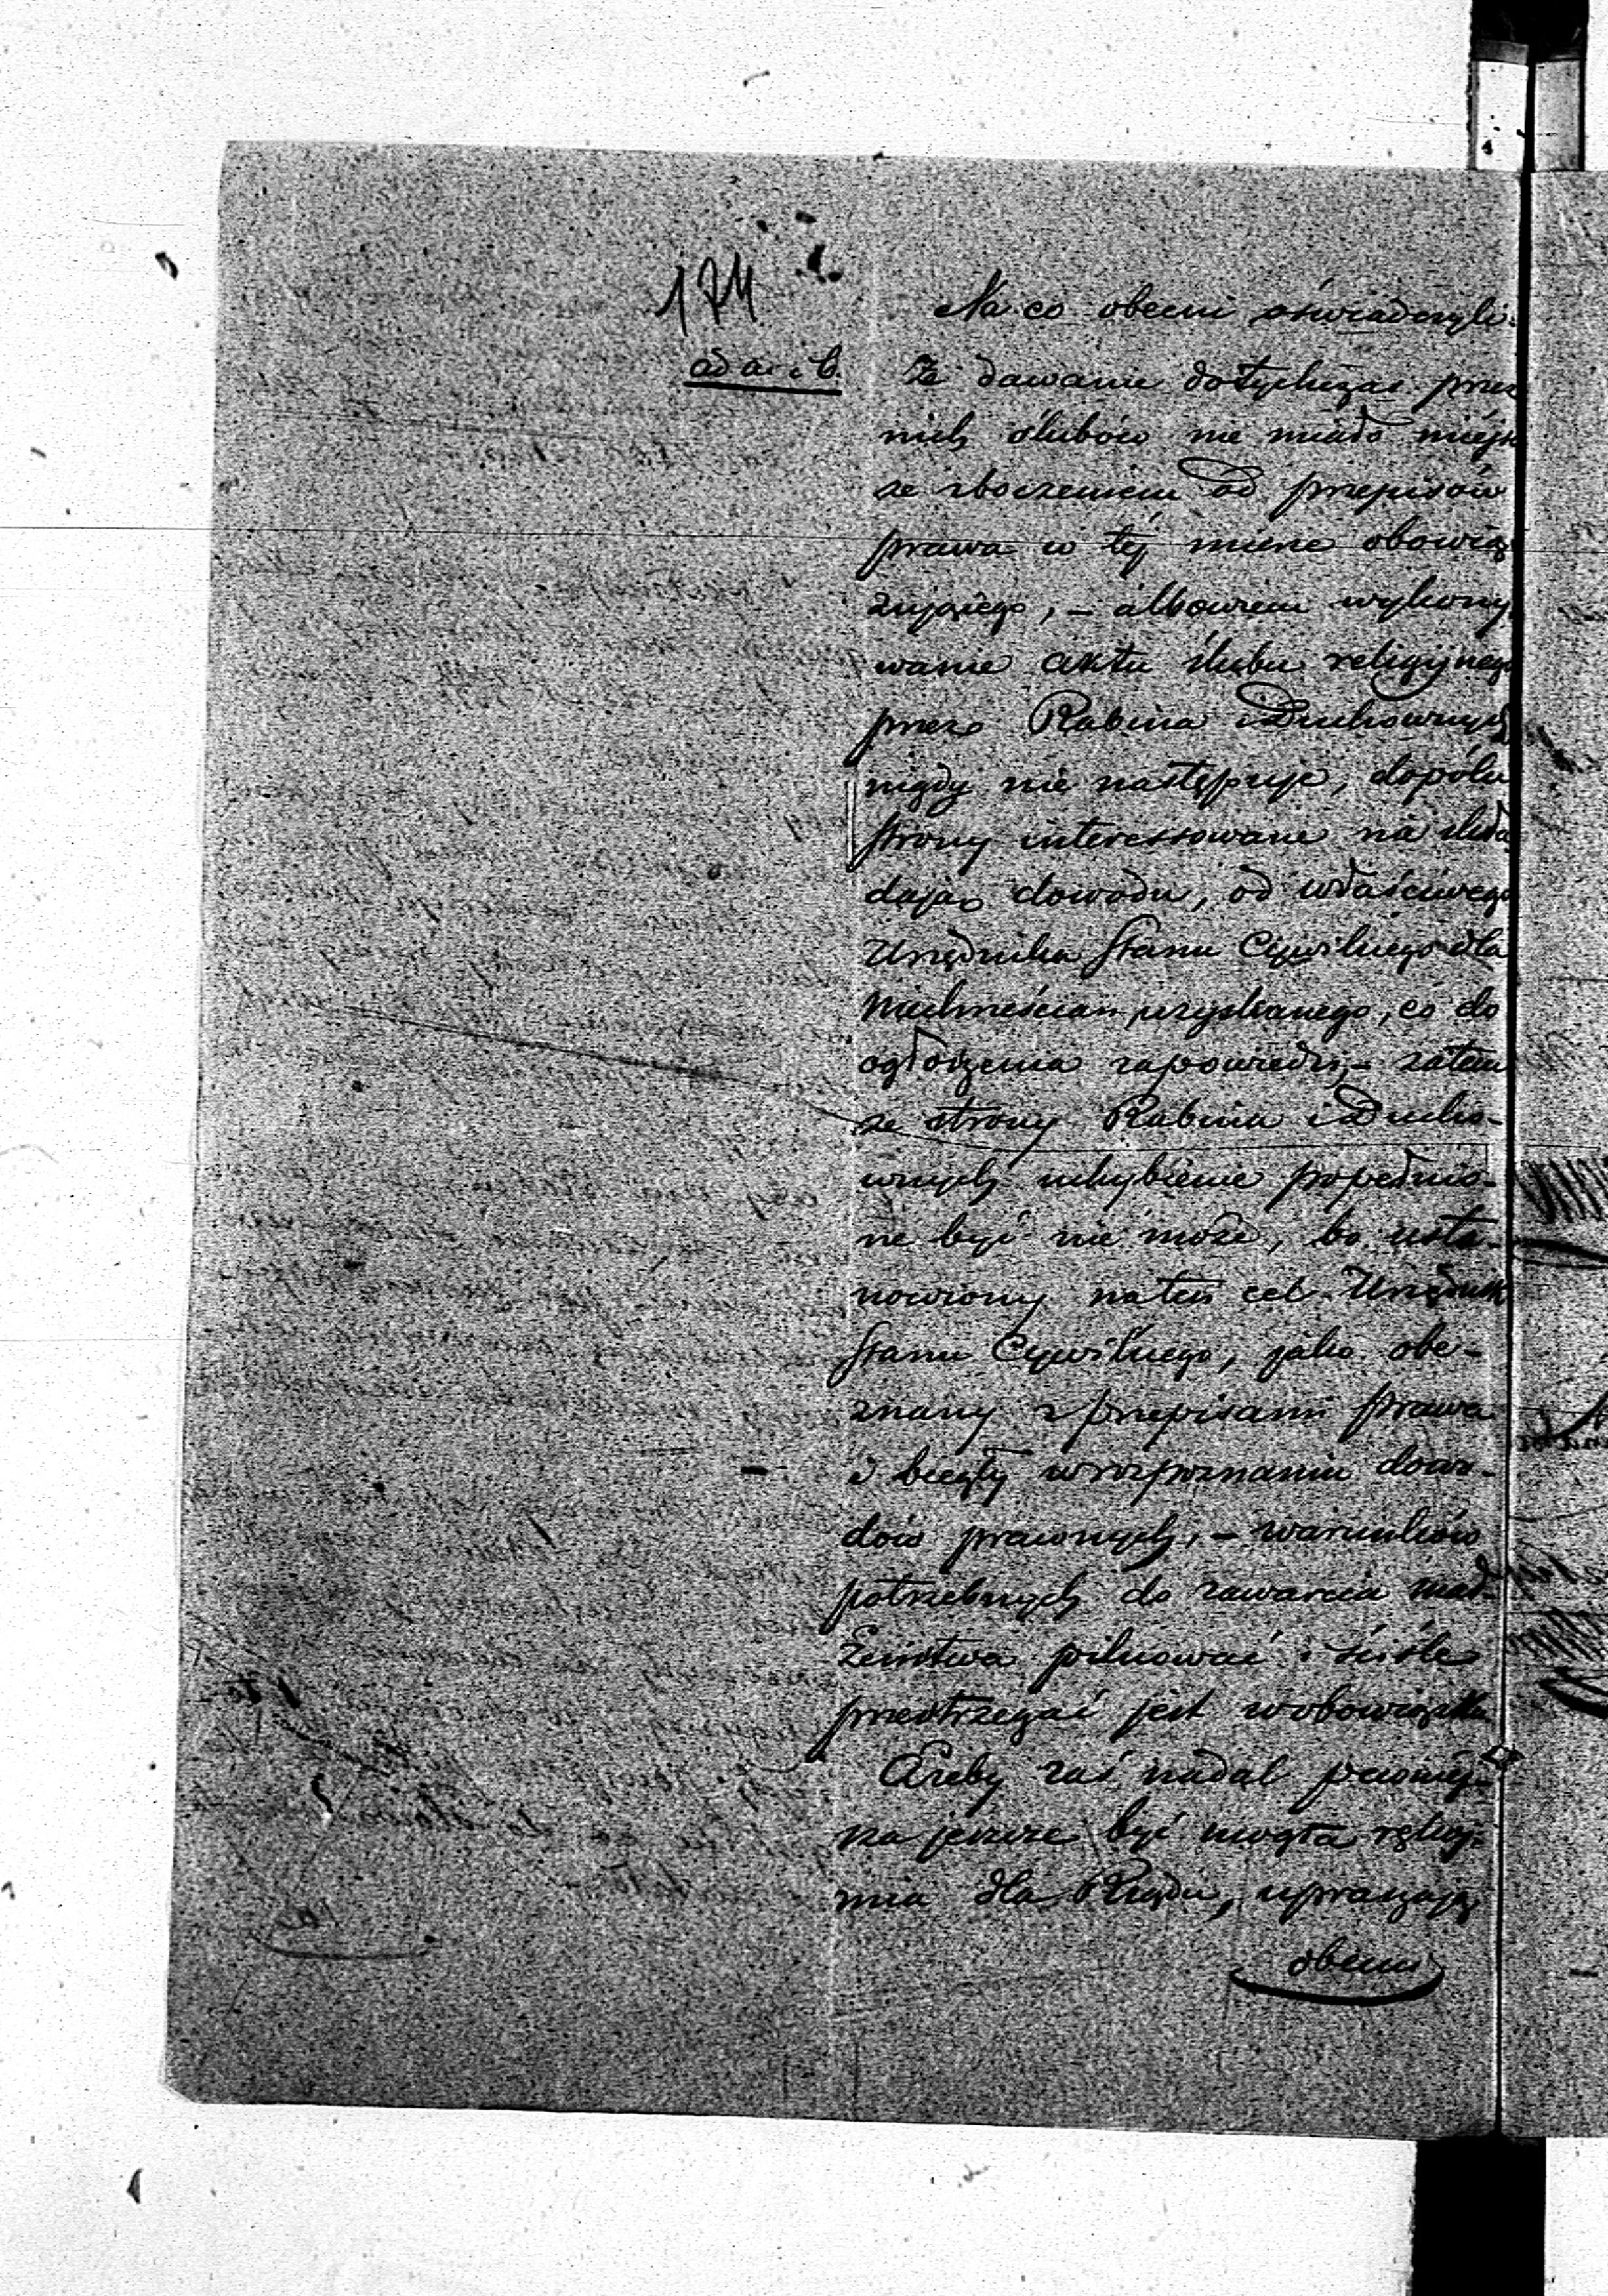 174
Na co obecni oświadczyli:
ad a. i b.
Że dawanie dotychczas przez
nich ślubów nie miało miejsc
ze zboczeniem od przepisów
prawa w téj mierze obowią
zującego, – albowiem wykony
wanie aktu ślubu religijnego
przez Rabina i Duchownych
nigdy nie następuje, dopóki
strony interessowane nie
dają dowodu, od właściwego
Urzędnika Stanu Cywilnego dla
Niechrześcian uzyskanego, co do
ogłoszenia zapowiedzi, – zatem
ze strony Rabina i Ducho-
wnych uchybienie popełnio-
ne być nie może, bo usta-
nowiony na ten cel Urzędnik
Stanu Cywilnego, jako obe-
znany z przepisami prawa
i biegły w rozpoznaniu dowo-
dów prawnych, – warunków
potrzebnych do zawarcia mał-
żeństwa pilnować i ściśle
przestrzegać jest w obowiązku
Ażeby zaś nadal pewniéj-
sza jeszcze być mogła rękoj-
mia dla Rządu, upraszają
obecni